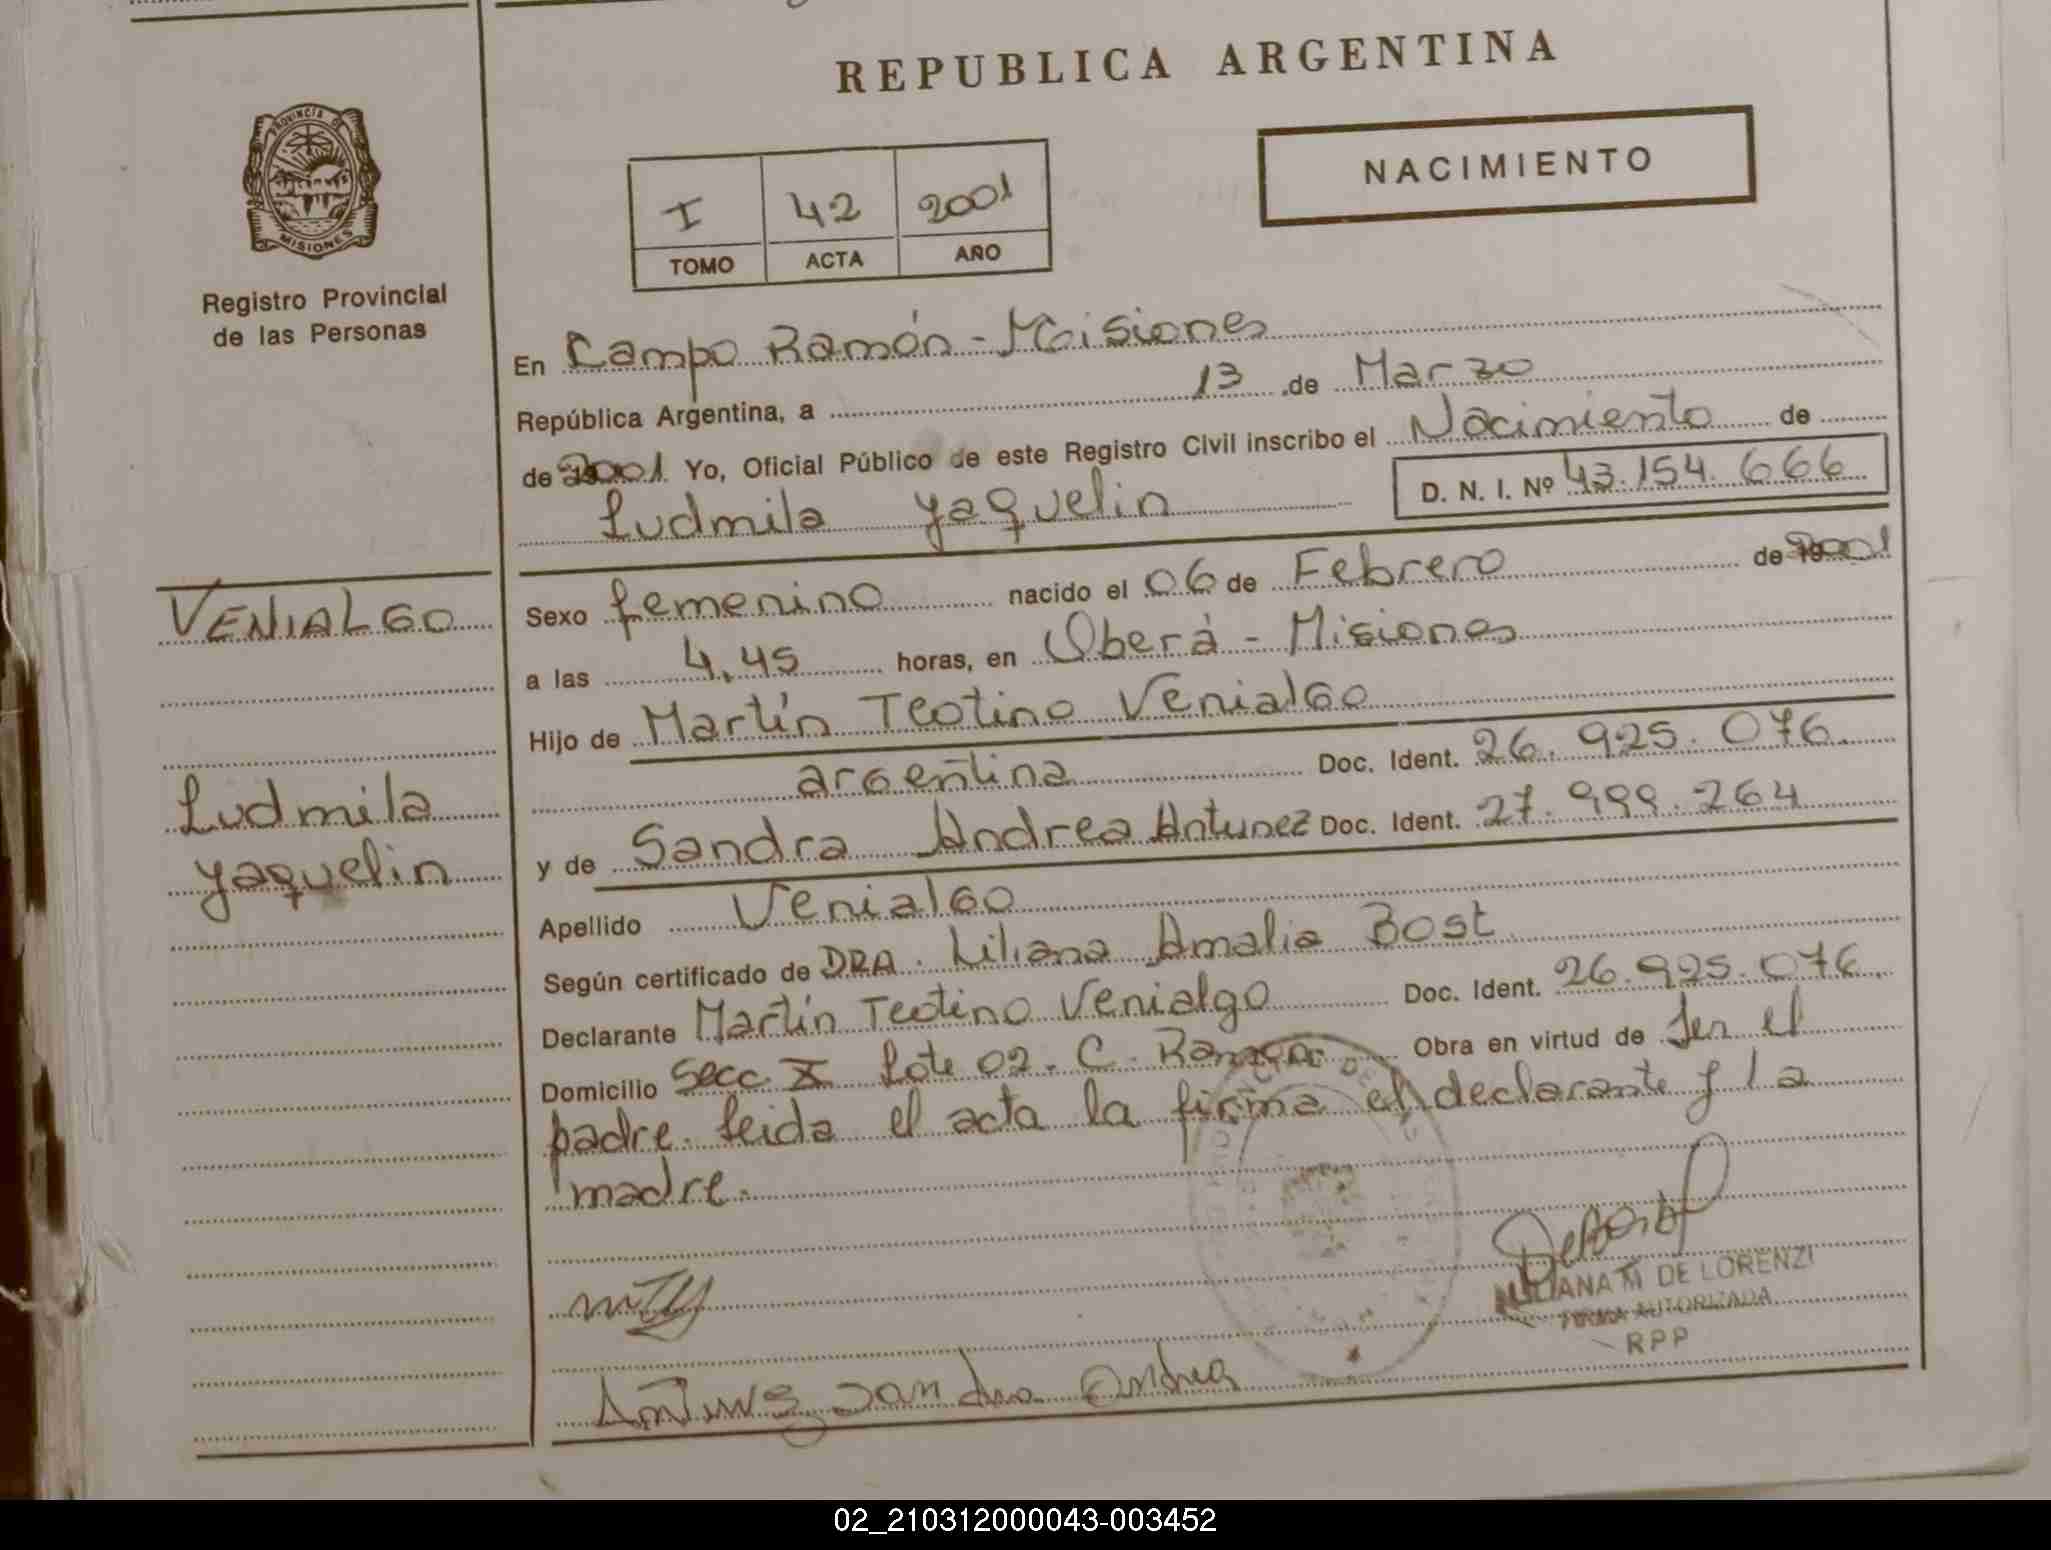 REPUBLICA ARGENTINA
PROVINCIA DE
MISIONES
Registro Provincial
de las Personas
NACIMIENTO
I 42 2001
TOMO ACTA AÑO
En Campo Ramón - Misiones
República Argentina, a 13 de Marzo
de 2001 Yo, Oficial Público de este Registro Civil inscribo el Nacimiento de
Ludmila Yaquelin D. N. I. Nº 43.154.666
VENIALGO
Ludmila
Yaquelin
Sexo femenino nacido el 06 de Febrero de 2001
a las 4,45 horas, en Oberá - Misiones
Hijo de Martín Teotino Venialgo
argentina Doc. Ident. 26.925.076
y de Sandra Andrea Antunez Doc. Ident. 27.999.264
Apellido Venialgo
Según certificado de DRA. Liliana Amalia Bost
Declarante Martín Teotino Venialgo Doc. Ident. 26.925.076
Domicilio Secc. X Lote 02. C. Ramón Obra en virtud de Ser el
padre. Leida el acta la firma el declarante y la
madre.
LILIANA M DE LORENZI
FIRMA AUTORIZADA
RPP
Antunez Sandra Andrea
02_210312000043-003452